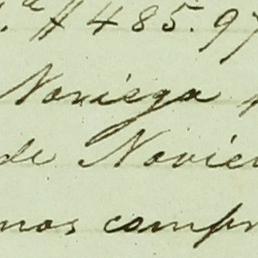 # 485.97
Noriega
de Novie
nos compr